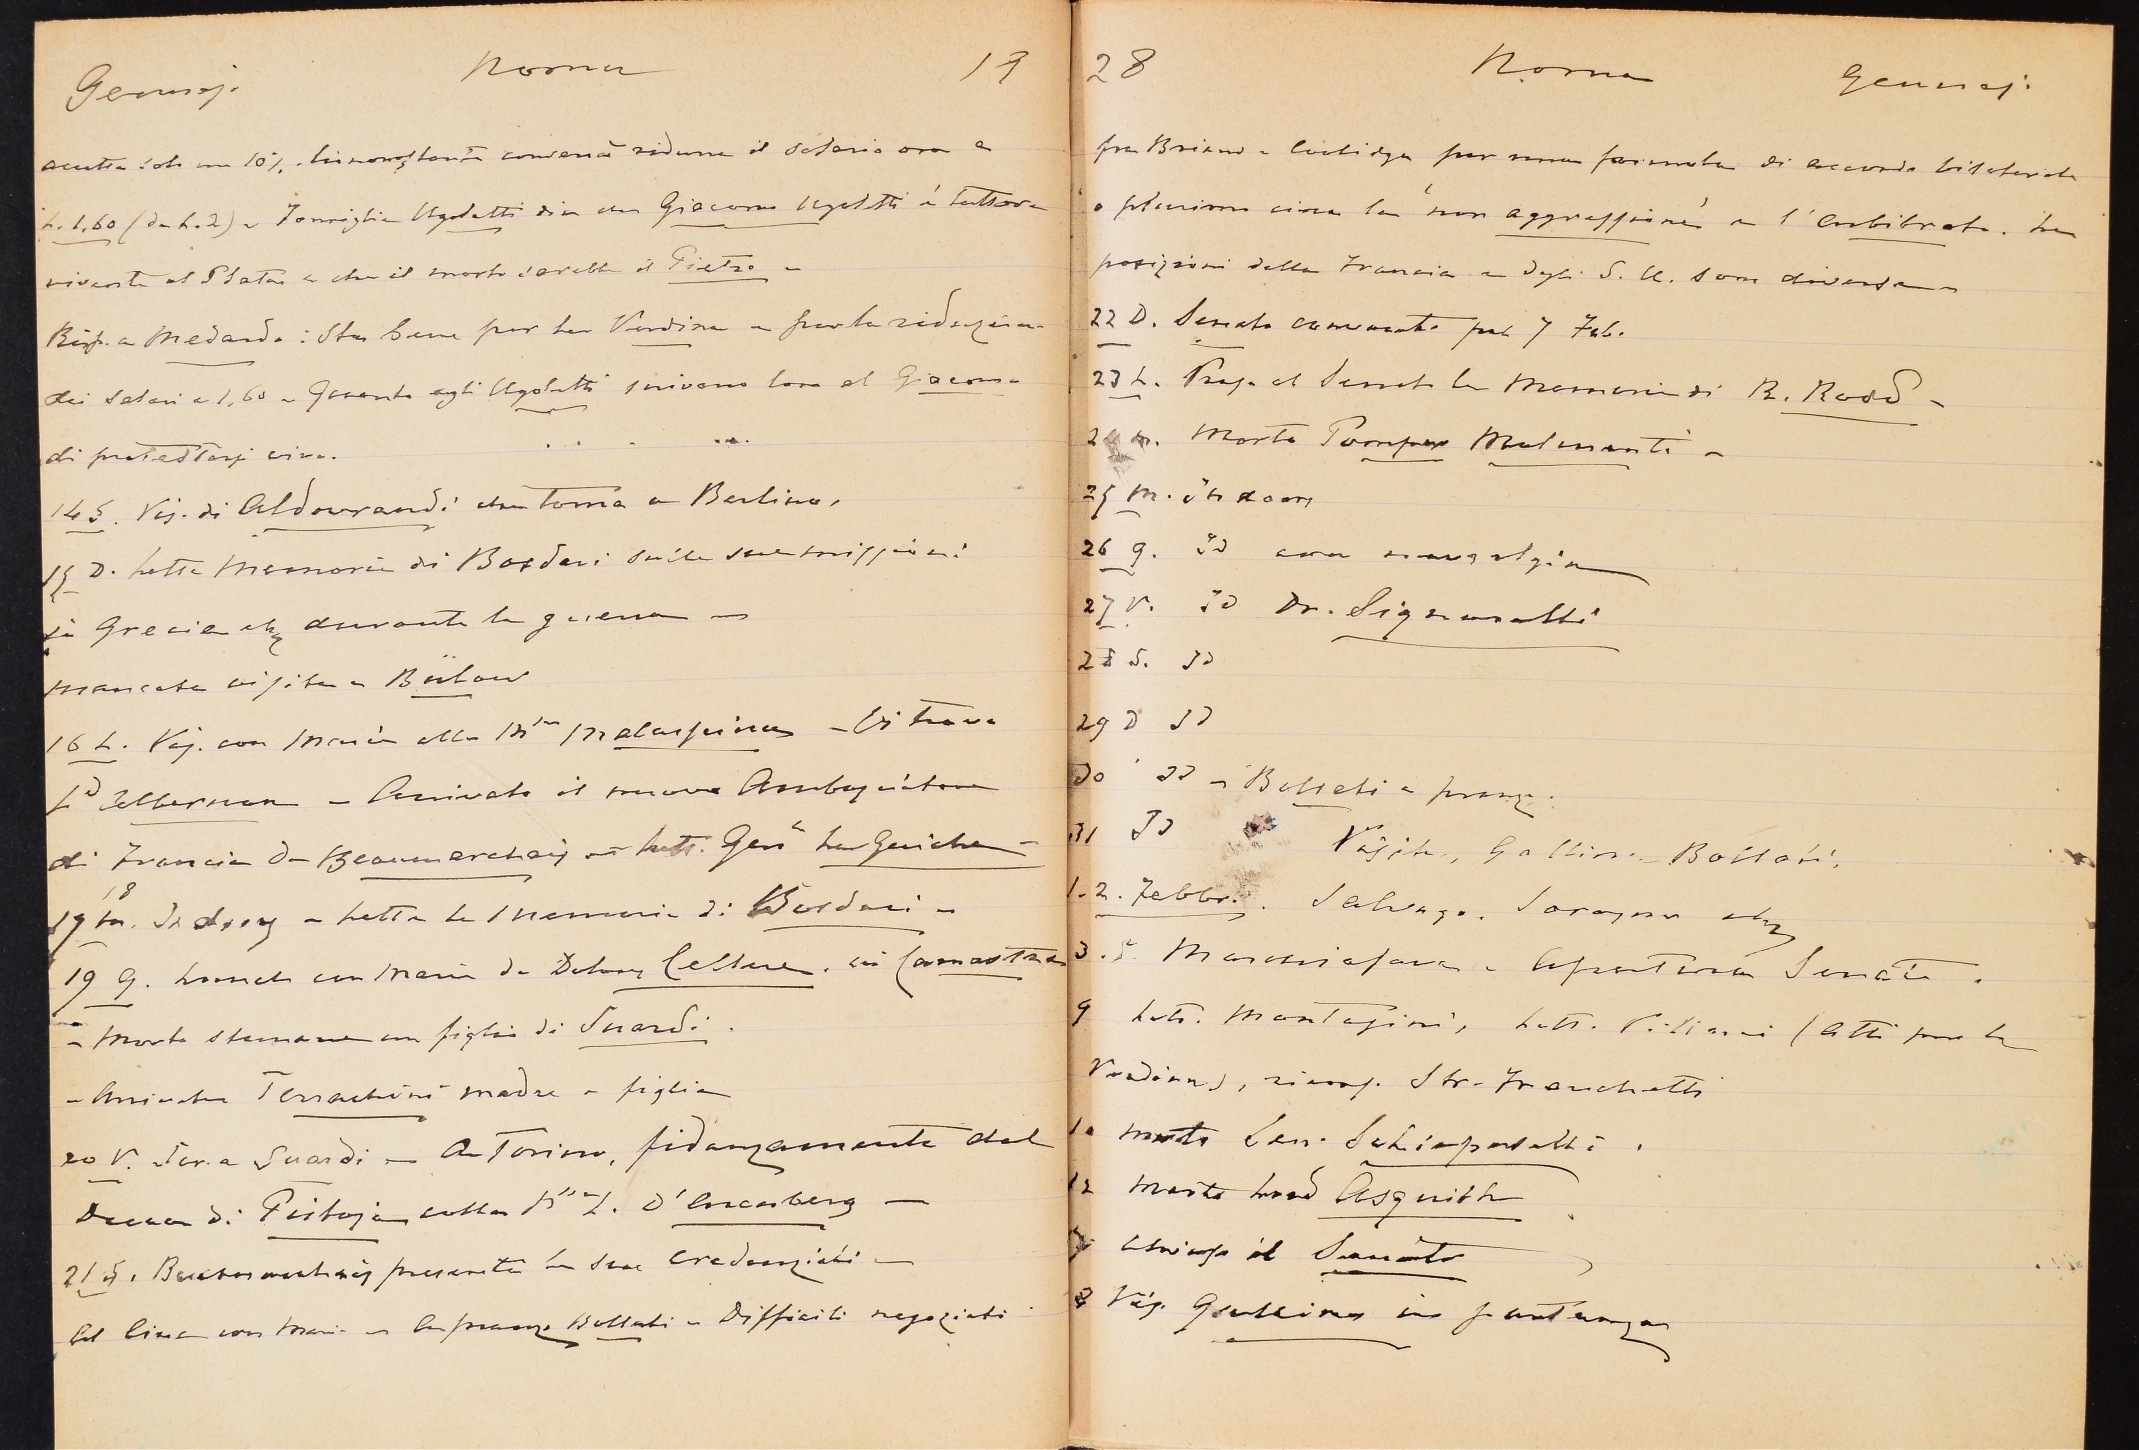 Gennaj. Roma 19
accetta solo un 10%. Ciononostante converrà ridurre il salario ora a
L. 1,60 (da L. 2) - Famiglia Ugoletti dice che Giacomo Ugoletti è tuttora
vivente al Plata e che il morto sarebbe il Pietro -
Risp. a Medardo: Sta bene per la Verdina e per la riduzione
dei salari a 1,60 - Quanto agli Ugoletti scrivano loro al Giacomo
di protestarsi vivo.
14 S. Vis. di Aldovrandi che torna a Berlino,
15 D. Letta Memoria di Bosdari sulla sua missione
in Grecia durante la guerra -
mancata visita a Bülow
16 L. Vis. con Maria alla Malaspina - Vi trovo
- Arrivato il nuovo Ambasciatore
di Francia De Beaumarchais - Lett.
18
17 M. Indoors - Letta la Memoria di Bosdari -
19 G. Lunch con Maria da Cellere.
- Morto stamane un figlio di Suardi.
- Arrivate Terrachini madre e figlia
20 V. Scr. a Suardi - A Torino, fidanzamento del
Duca di Pistoja colla L. D'Arenberg -
21 S. Beaumarchais presenta le sue credenziali -
Al Cine con Maria - A pranzo Bollati - Difficili negoziati
28 Roma Gennaj.
fra Briand e Coolidge per una formula di accordo bilaterale
o plurimo circa la "non aggressione" e l'arbitrato. Le
posizioni della Francia e degli S. U. sono diverse -
22 D. Senato convocato pel 7 Feb.
23 L. al Senato la Memoria di R. Rodd -
24 M. Morto Pompeo Molmenti -
25 M. Indoors
26 G. Id con nevralgia
27 V. Id Dr. Signorelli
28 S. Id
29 D Id
30 Id - Bollati a pranz.
31 Id Visite, Gallina Bollati,
1.2. Febbr. Salvago.
3.5. Marchiafava - Apertura Senato.
9 Lett. Lett. (Atti per la
Verdina), Str. Franchetti
10 morto Sen. Schiaparelli.
12 morto Lord Asquith
il Senato
Vis. Gallina in partenza